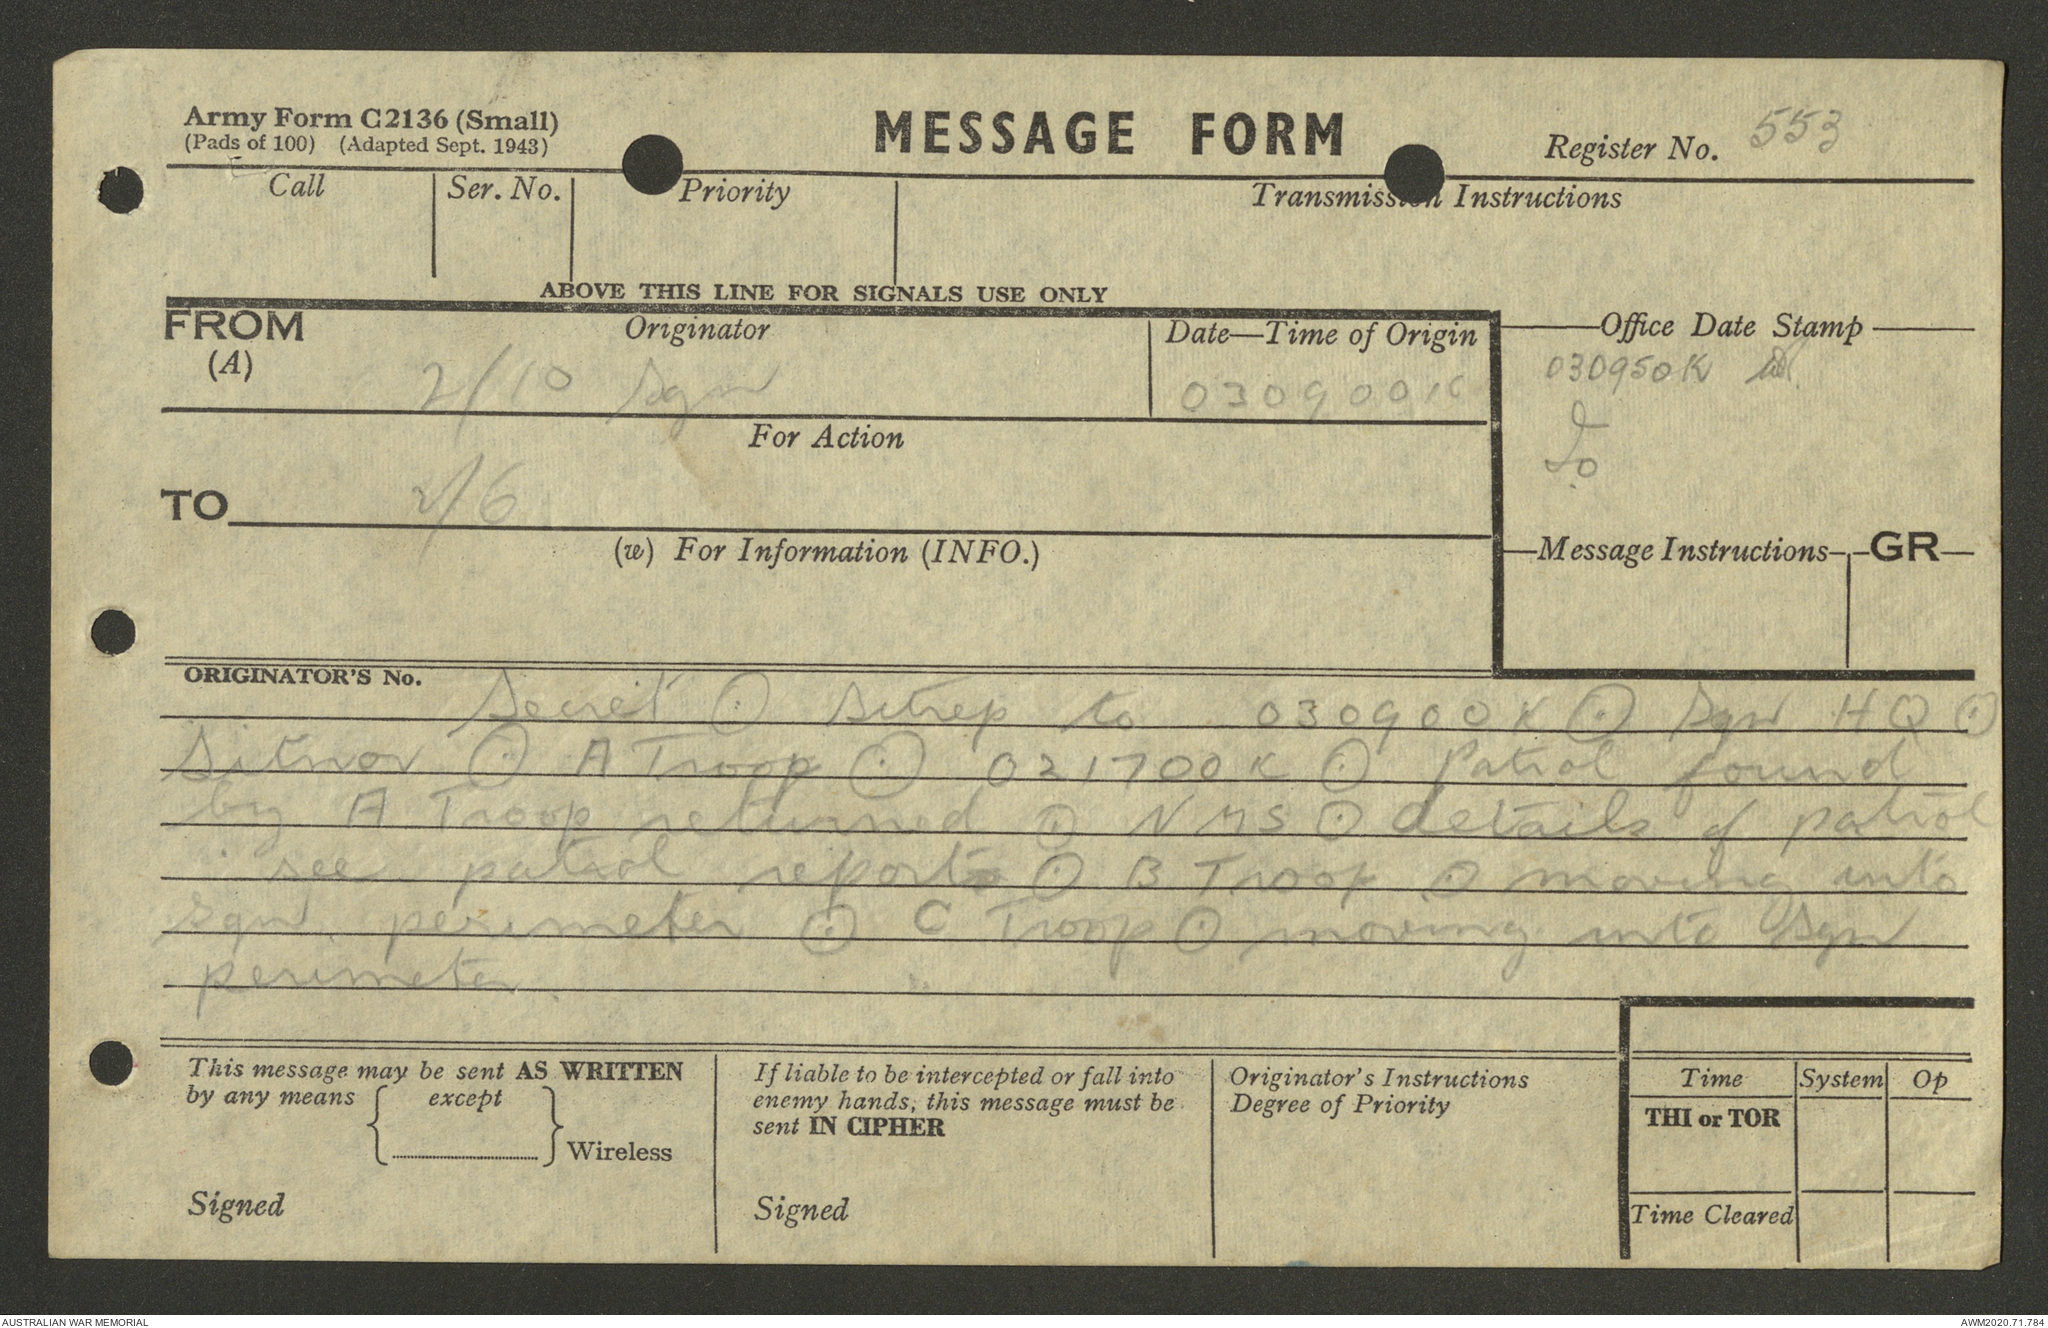 Army Form C2136 (Small)
(Pads of 100) (Adapted Sept. 1943)
MESSAGE FORM
Register No. 553
Call Ser. No. Priority Transmission Instructions
ABOVE THIS LINE FOR SIGNALS USE ONLY
FROM (A)
Originator
2/10 Sqn
Date—Time of Origin
030900K
Office Date Stamp
030950K
For Action
TO 2/6
Io
(w) For Information (INFO.)
Message Instructions GR
ORIGINATOR'S No.
Secret ⊙ Sitrep to 030900K ⊙ Sqn HQ ⊙
Sitnor ⊙ A Troop ⊙ 021700K ⊙ Patrol found
by A Troop returned ⊙ NMS ⊙ details of patrol
see patrol report ⊙ B Troop ⊙ moving into
Sqn perimeter ⊙ C Troop ⊙ moving into Sqn
perimeter
This message may be sent AS WRITTEN
by any means except
Wireless
Signed
If liable to be intercepted or fall into
enemy hands, this message must be
sent IN CIPHER
Signed
Originator's Instructions
Degree of Priority
Time System Op
THI or TOR
Time Cleared
AUSTRALIAN WAR MEMORIAL
AWM2020.71.784